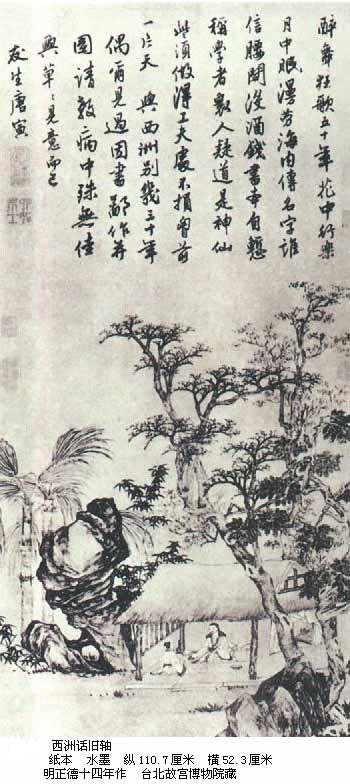 醉舞狂歌五十年花中行樂
月中眠漫勞海內傳名字誰
信腰間沒酒錢書本自慙
稱學者衆人疑道是神仙
些須做得工夫處不損胷前
一片天 與西洲別幾三十年
偶爾見過因書鄙作并
圖請教病中殊無佳
興草〻見意而已
友生唐寅
西洲话旧轴
纸本 水墨 纵110.7厘米 横52.3厘米
明正德十四年作 台北故宫博物院藏